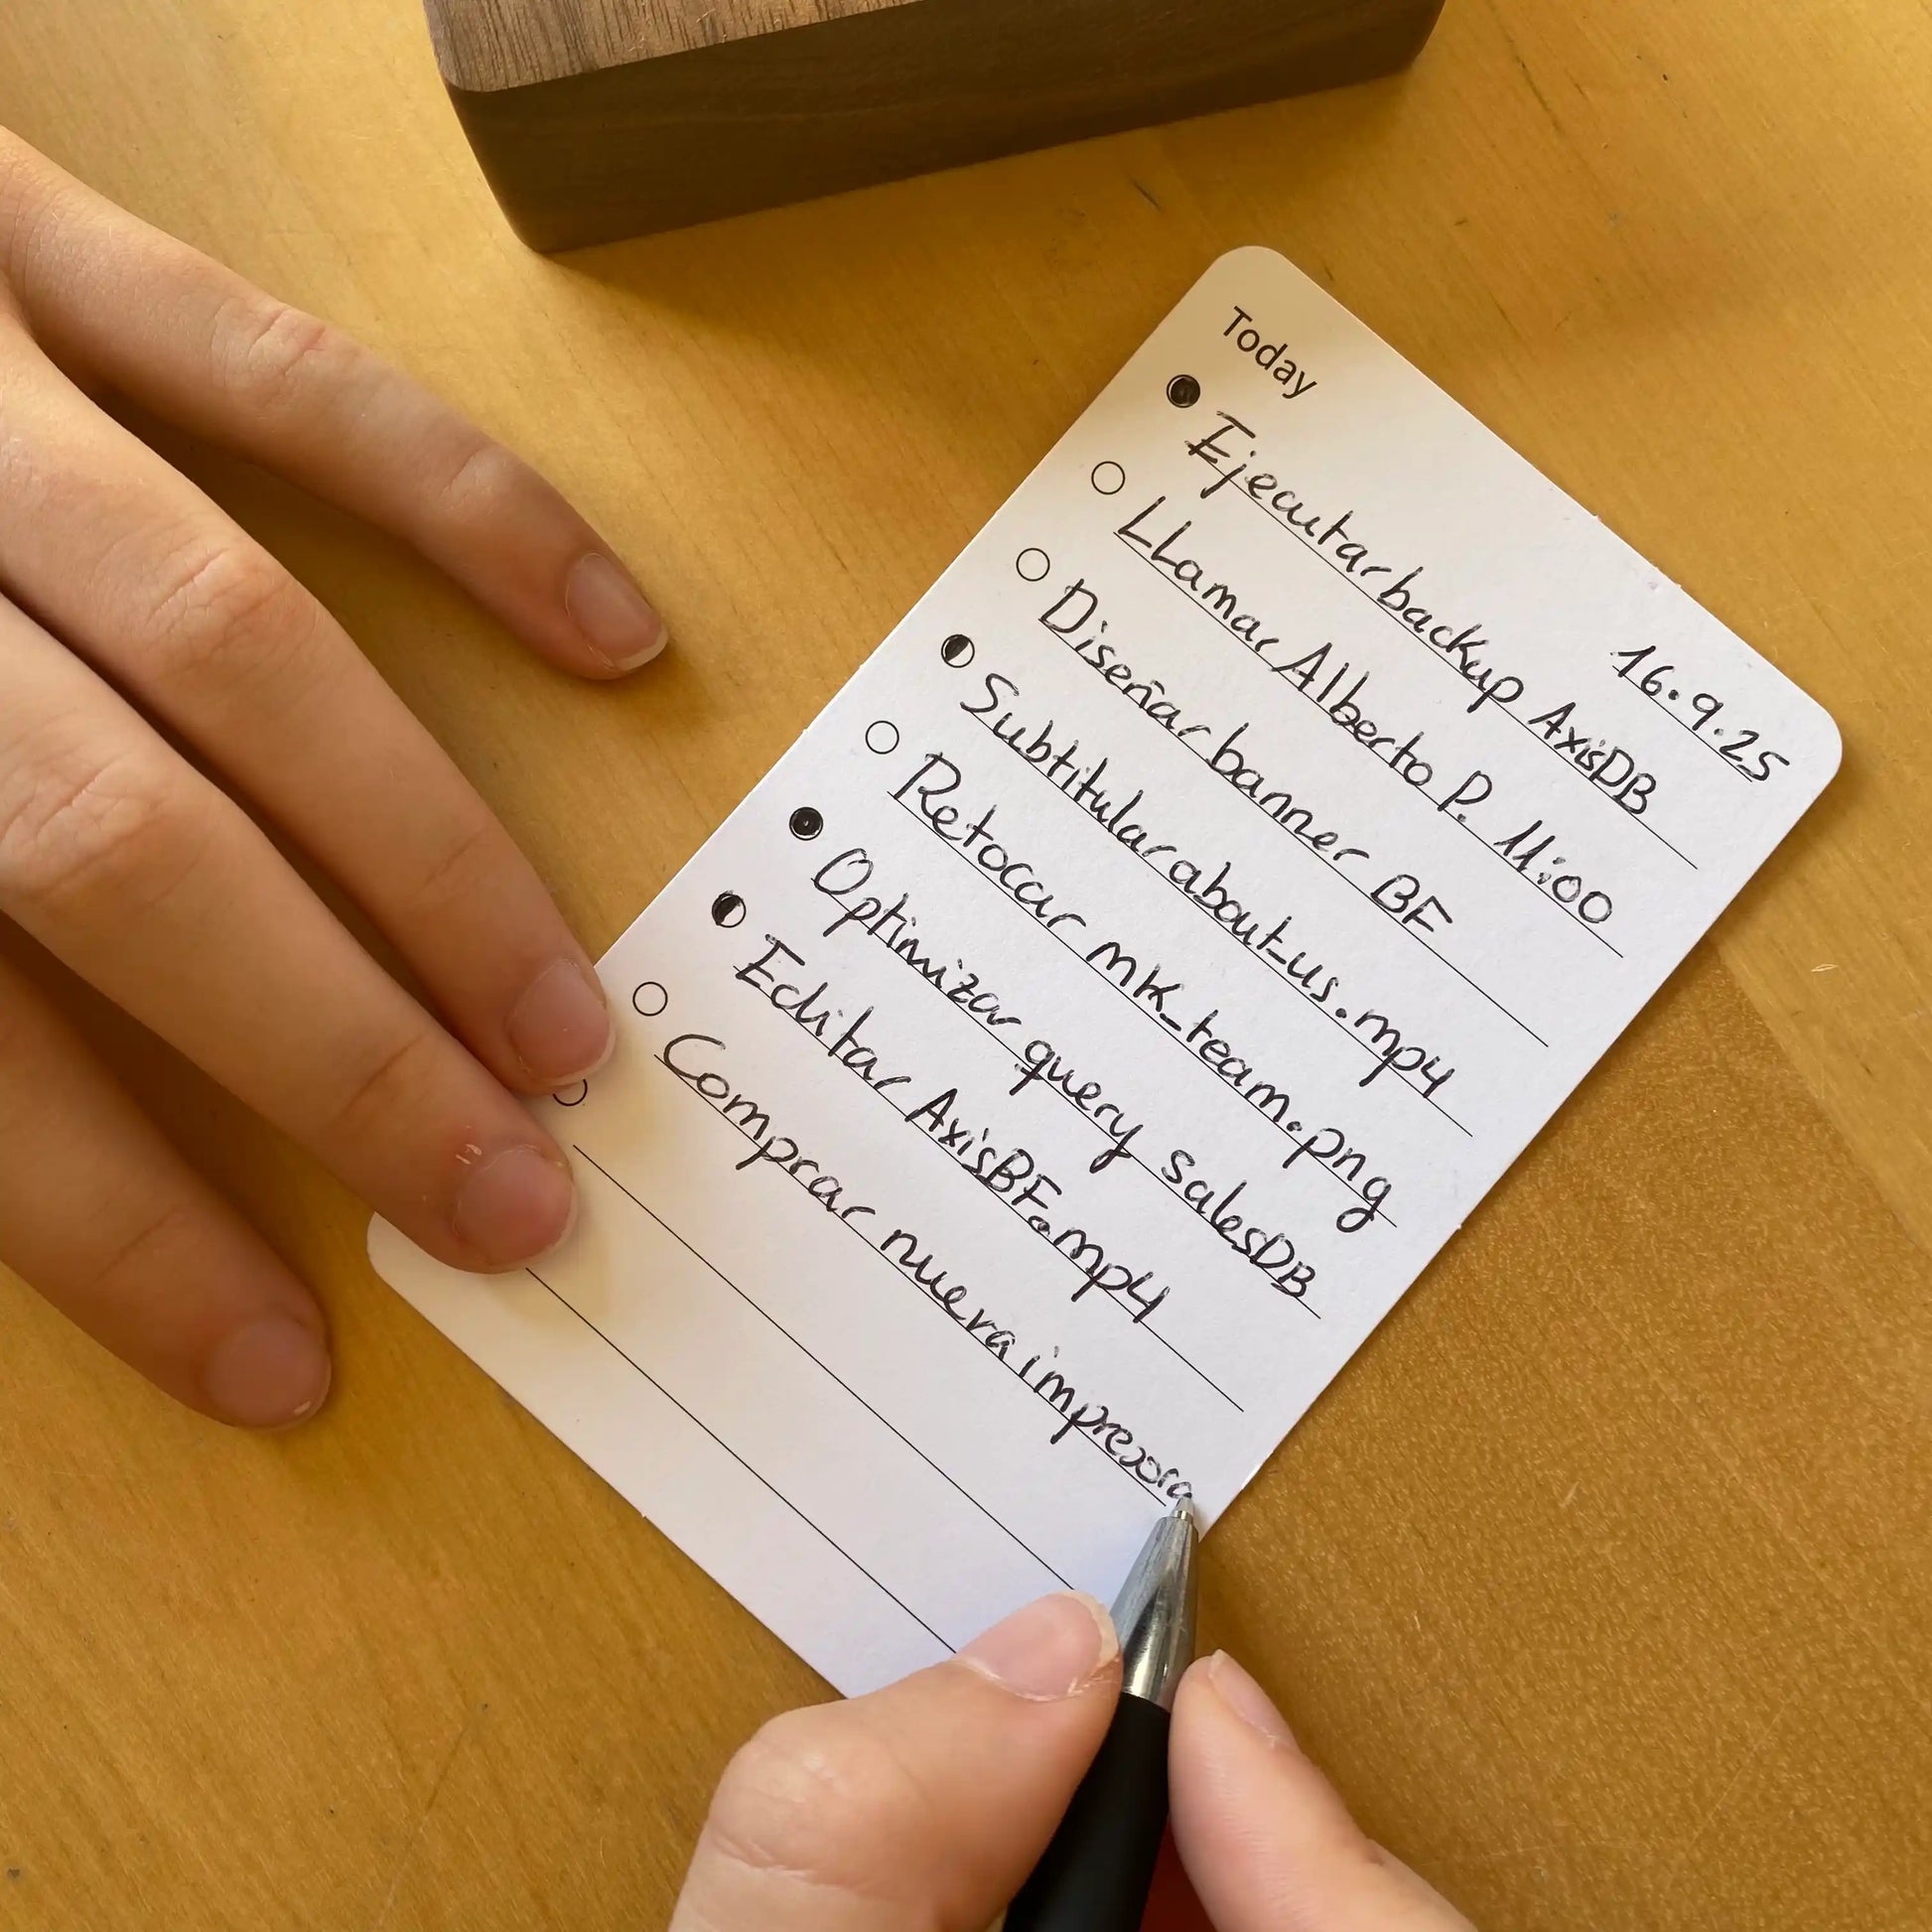 Today
16.9.25
Ejecutar backup AxisDB
LLamar Alberto P. 11:00
Diseñar banner BF
Subtitular about_us.mp4
Retocar MK_team.png
Optimizar query salesDB
Editar AxisBF.mp4
Comprar nueva impresora